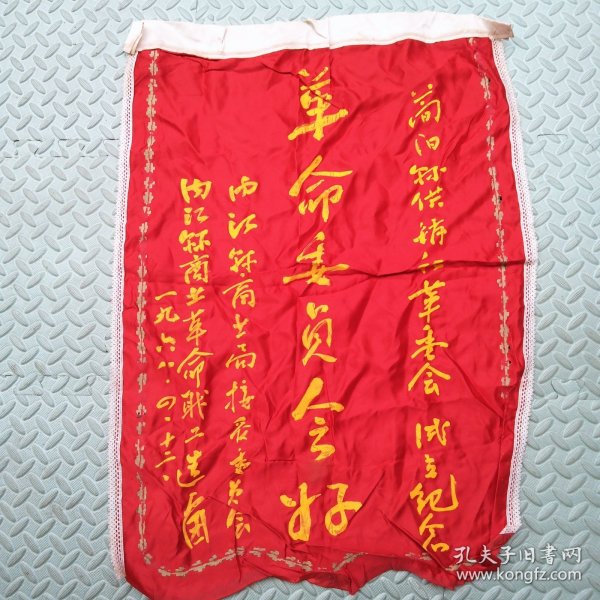 简阳县供销社革委会 成立纪念
革命委员会好
内江县商业局接管委员会
内江县商业革命职工造
一九六八·四·十二·
孔夫子旧书网
www.kongfz.com